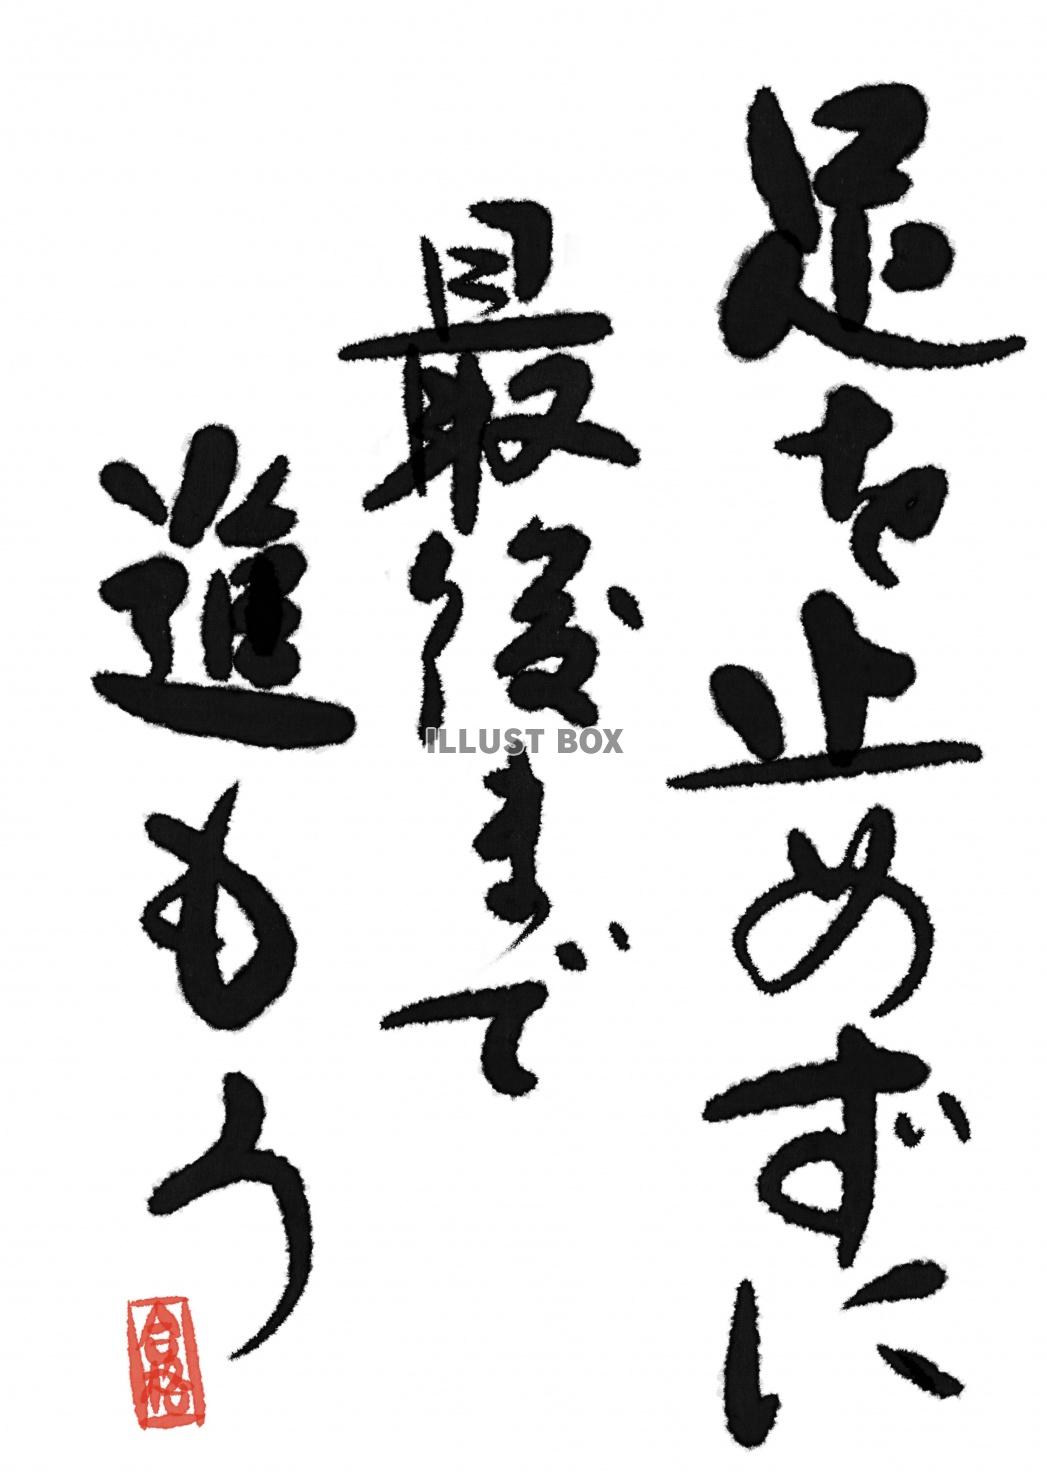 足を止めずに
最後まで
進もう
合格
ILLUST BOX